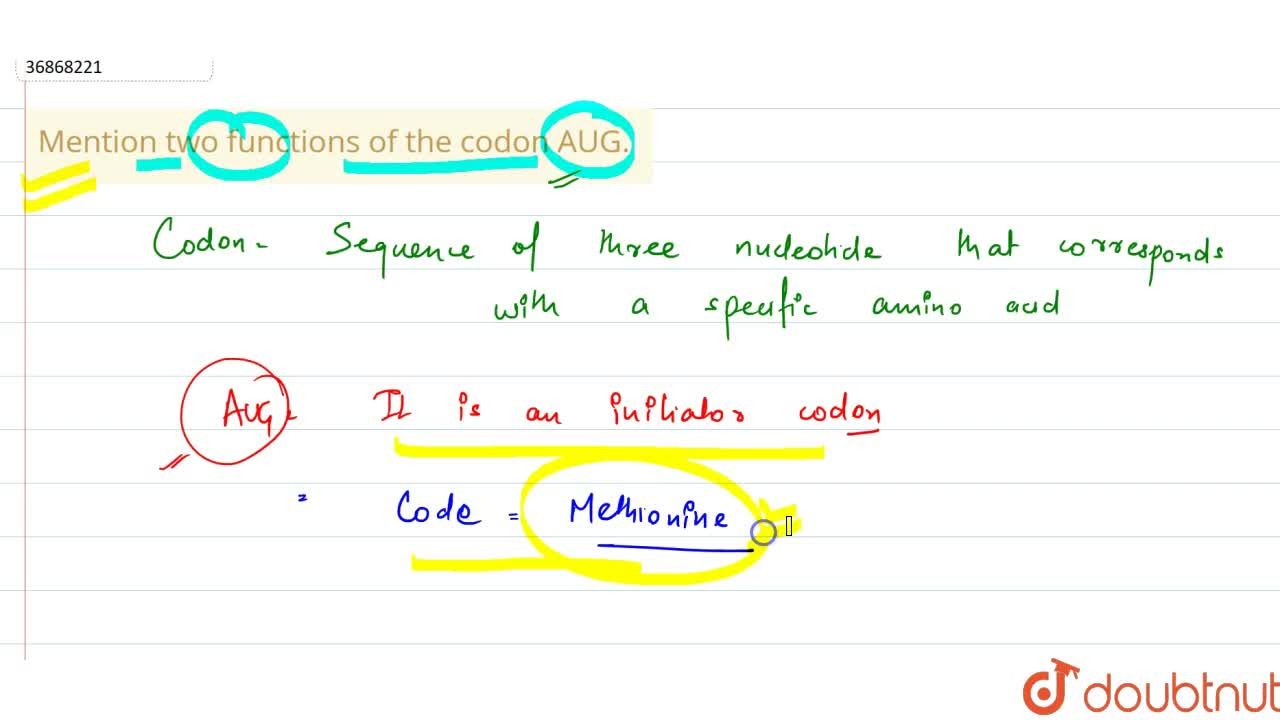 36868221
Mention two functions of the codon AUG.
Codon - Sequence of three nucleotide that corresponds
with a specific amino acid
AUG - It is an initiator codon
= Code = Methionine
doubtnut